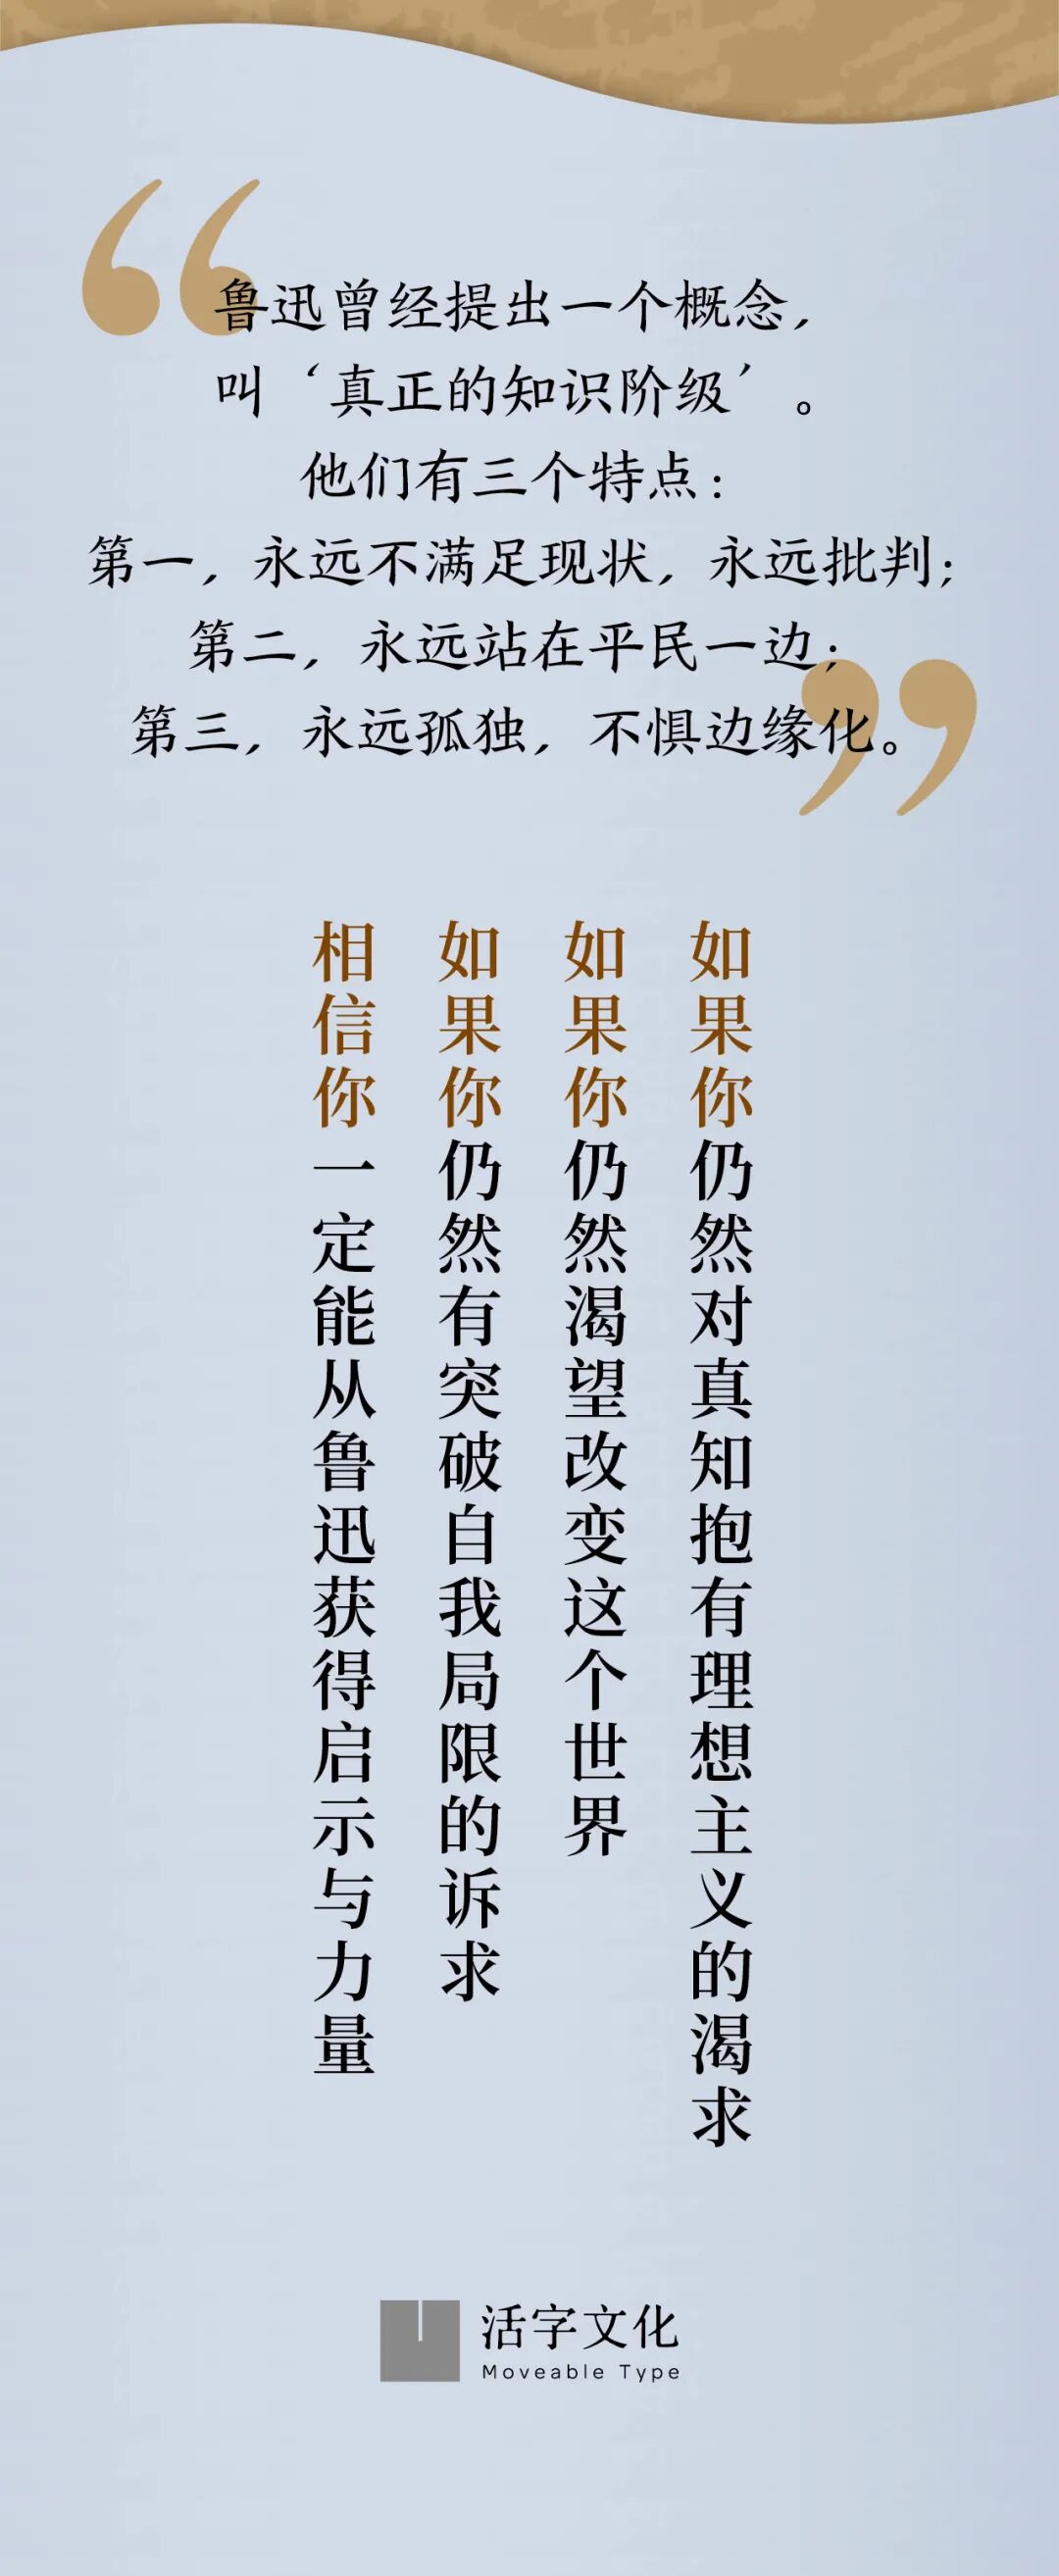 鲁迅曾经提出一个概念，
叫‘真正的知识阶级’。
他们有三个特点：
第一，永远不满足现状，永远批判；
第二，永远站在平民一边；
第三，永远孤独，不惧边缘化。
如果你仍然对真知抱有理想主义的渴求
如果你仍然渴望改变这个世界
如果你仍然有突破自我局限的诉求
相信你一定能从鲁迅获得启示与力量
活字文化
Moveable Type